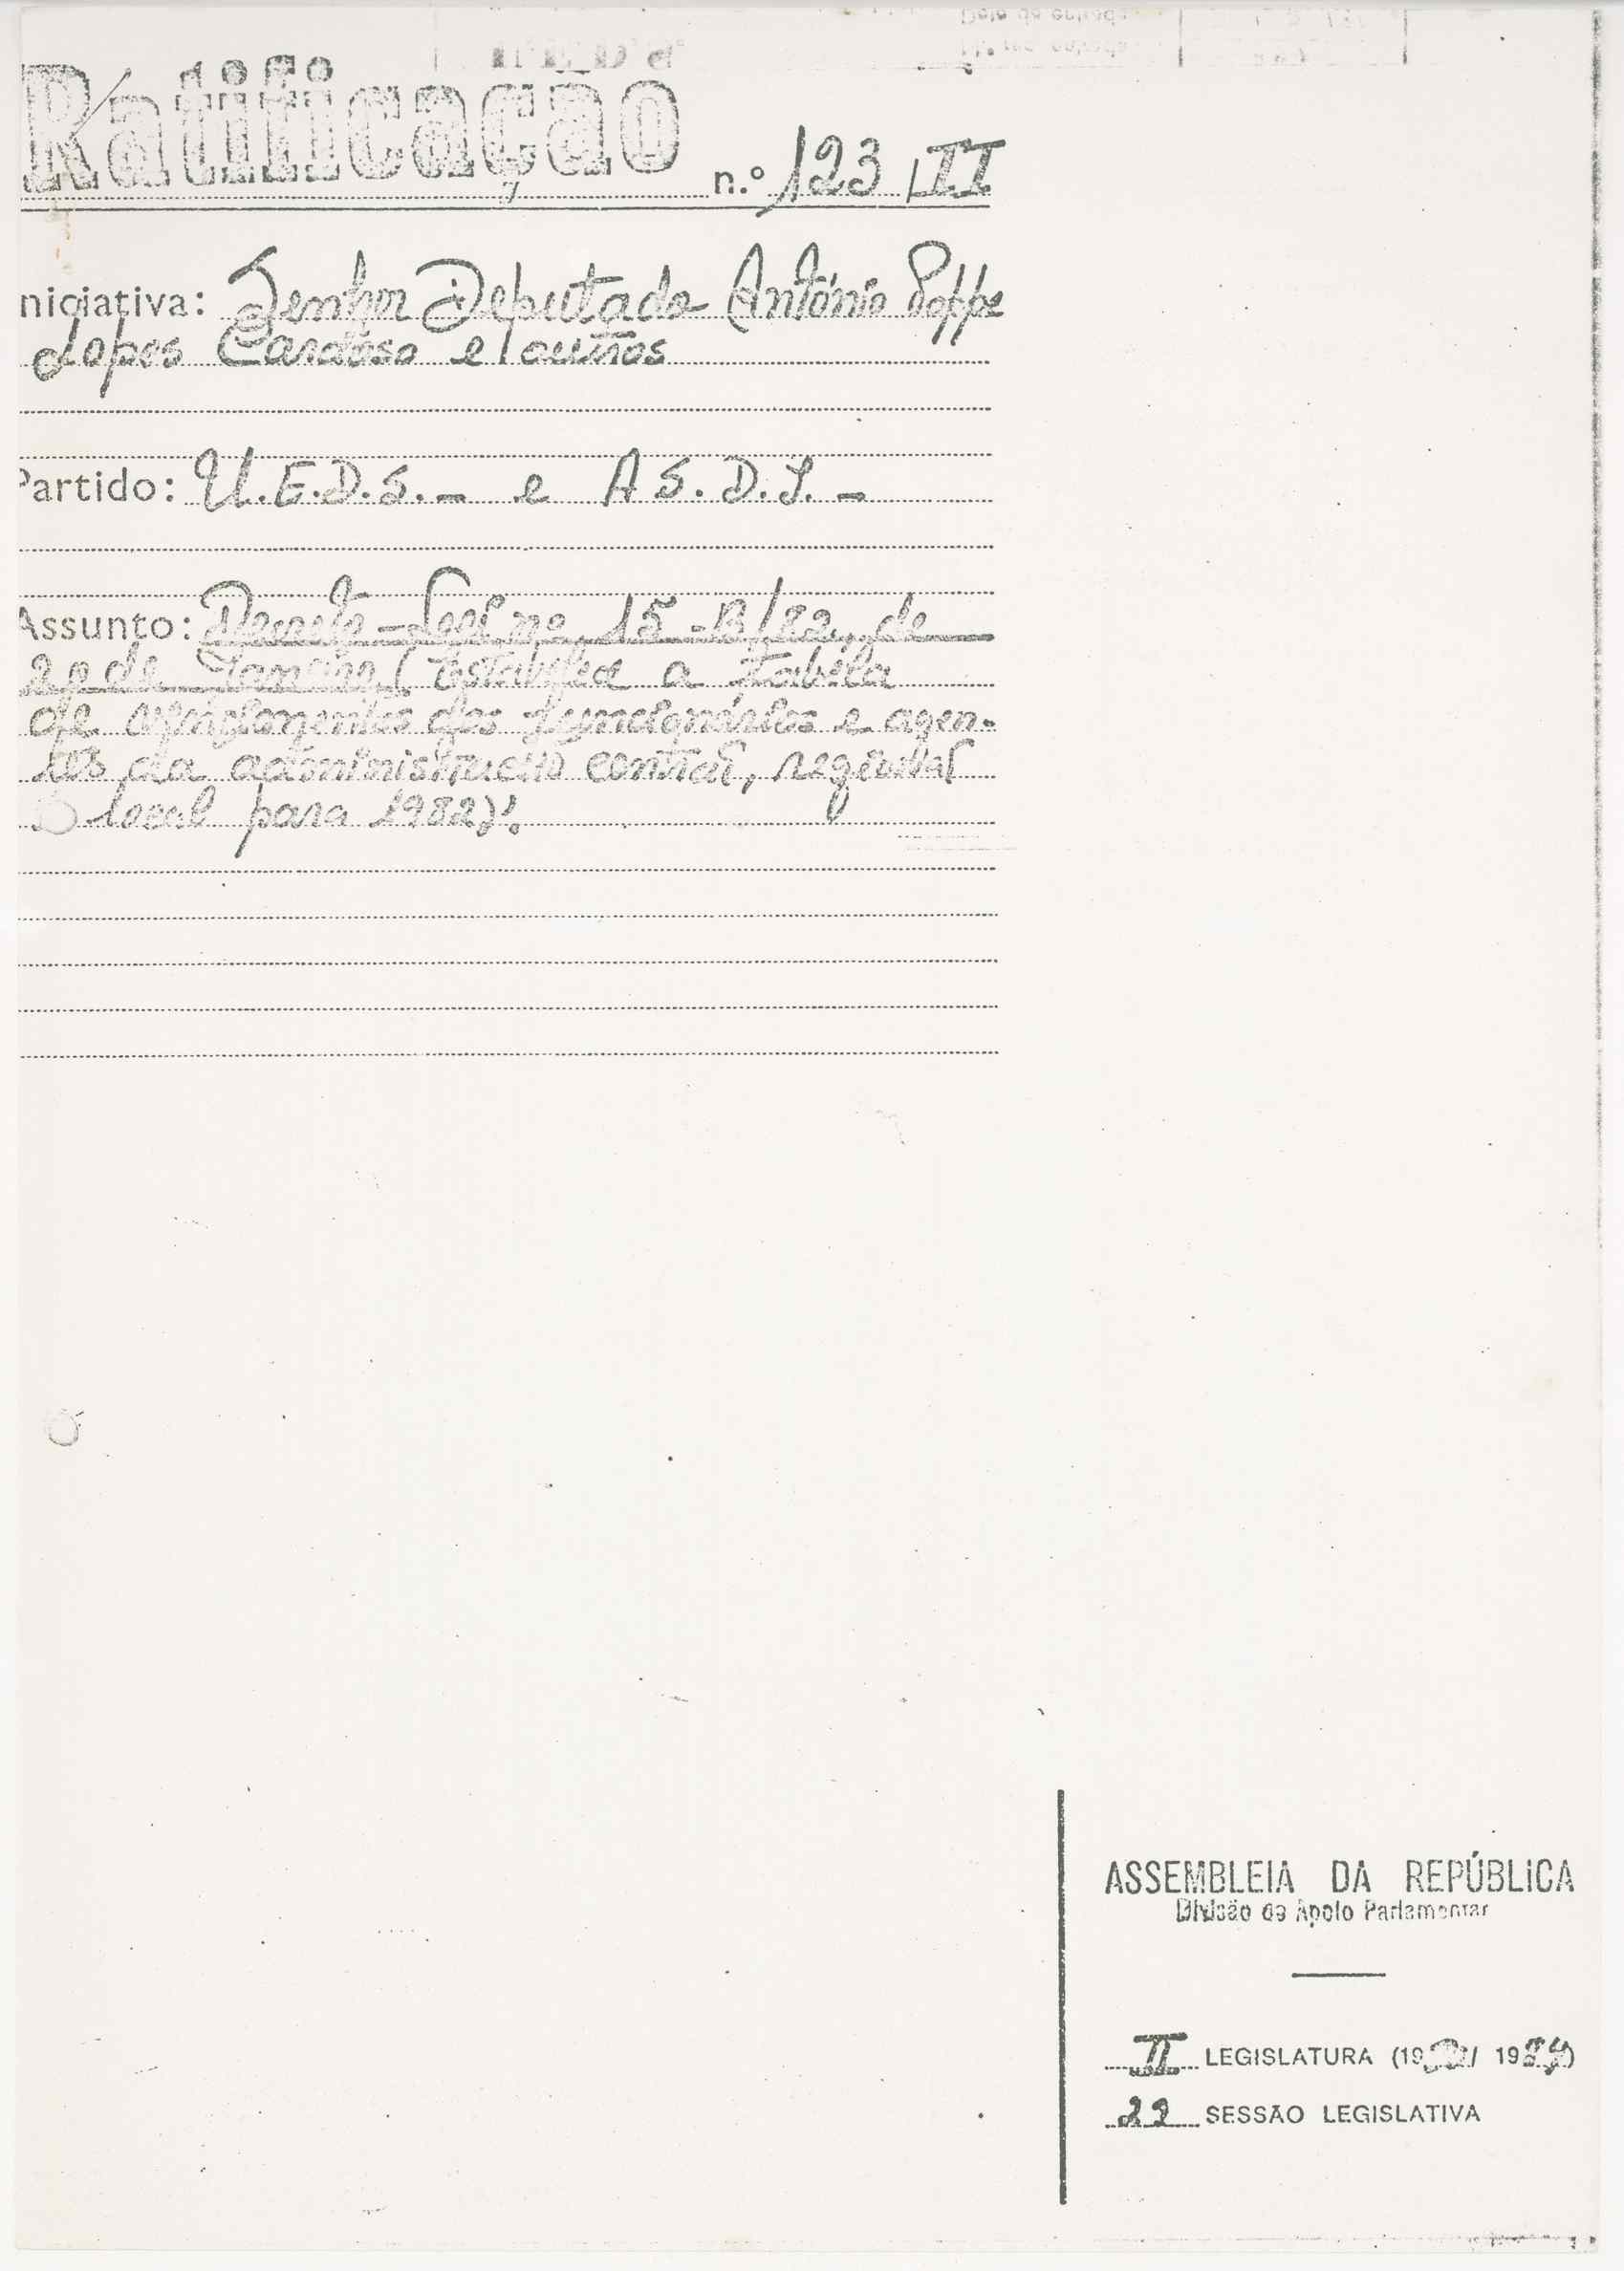 Ratificação n.º 123/II
niciativa: Senhor Deputado António Poppe
Lopes Cardoso e outros
Partido: U.E.D.S. - e A S. D. I. -
Assunto: Decreto-Lei nº 15-B/82, de
20 de Janeiro ( Estabelece a tabela
de vencimentos dos funcionários e agen-
tes da administração central, regional
e local para 1982).
ASSEMBLEIA DA REPÚBLICA
Divisão de Apoio Parlamentar
II LEGISLATURA (19 / 1984)
2ª SESSÃO LEGISLATIVA